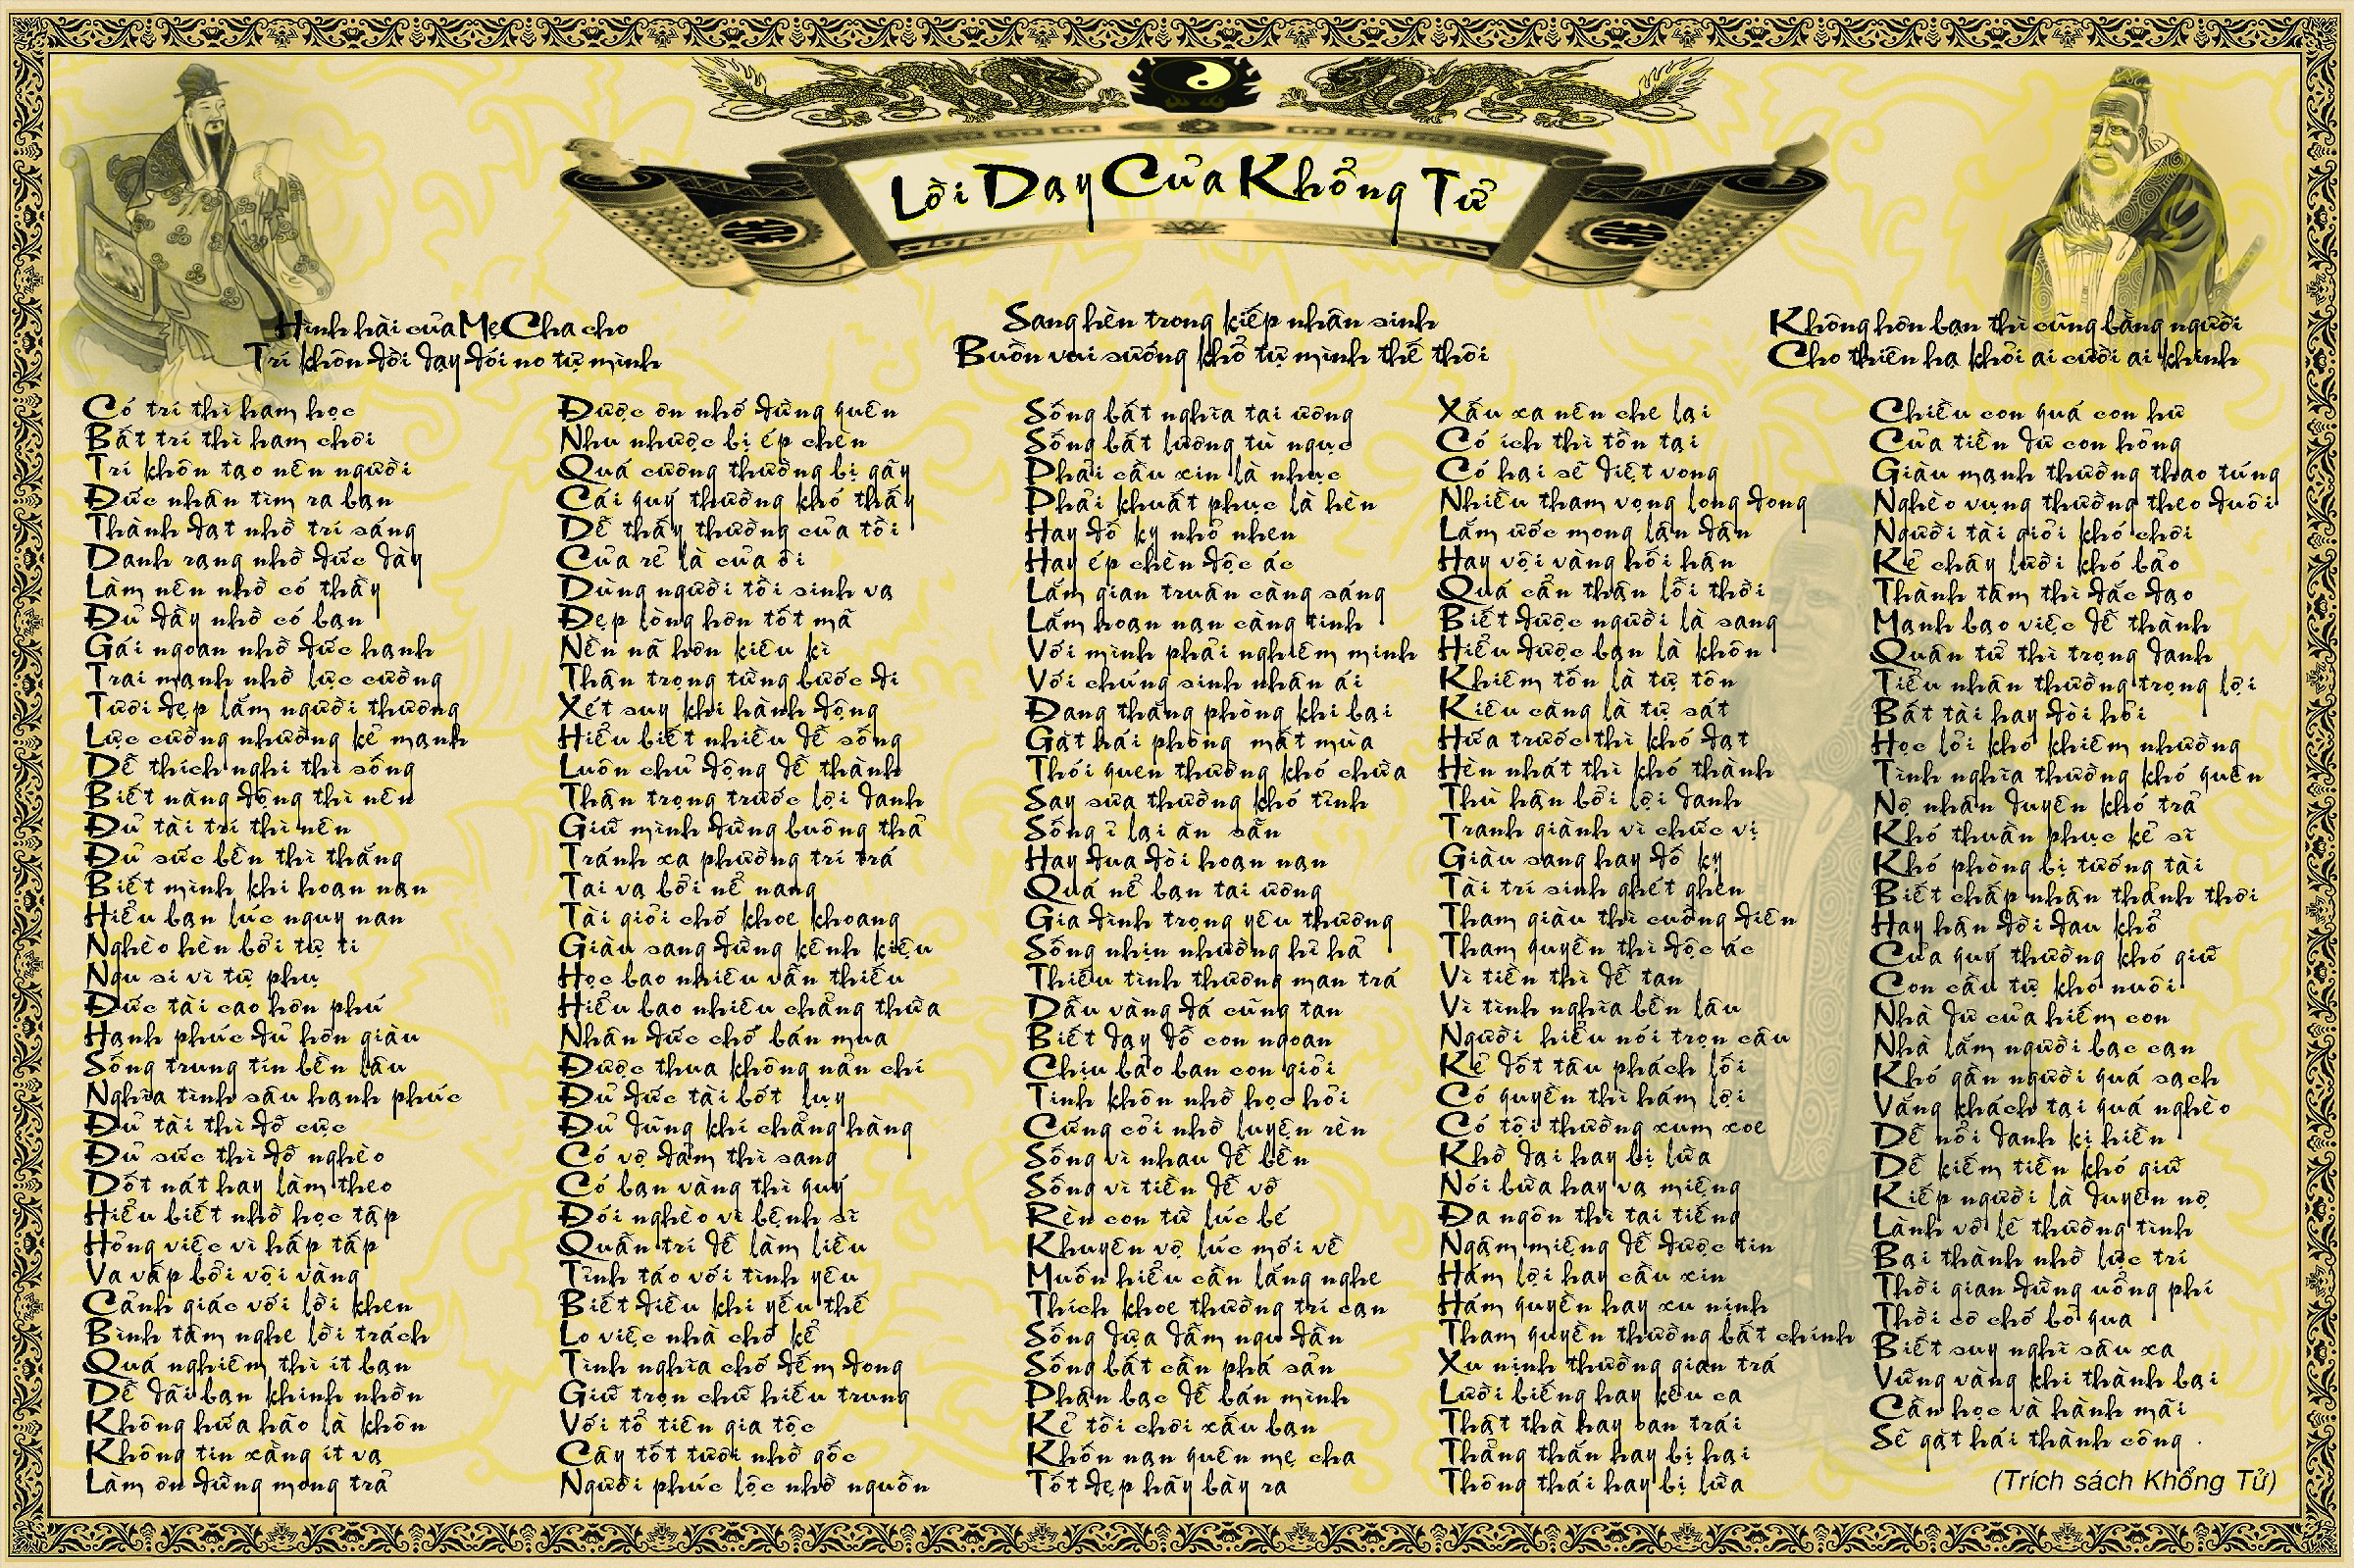 Lời Dạy Của Khổng Tử
Hình hài của Mẹ Cha cho
Trí khôn đời dạy đói no tự mình
Sang hèn trong kiếp nhân sinh
Buồn vui sướng khổ tự mình thế thôi
Không hôn bạn thì cũng bằng người
Cho thiên hạ khỏi ai cười ai khinh
Có trí thì ham học
Bất trí thì ham chơi
Trí khôn tạo nên người
Đức nhân tìm ra bạn
Thành đạt nhờ trí sáng
Danh rạng nhờ đức dày
Làm nên nhờ có thầy
Đủ đầy nhờ có bạn
Gái ngoan nhờ đức hạnh
Trai mạnh nhờ lực cường
Tươi đẹp lắm người thương
Lực cường nhường kẻ mạnh
Dễ thích nghi thì sống
Biết năng động thì nên
Đủ tài trí thì nên
Đủ sức bền thì thắng
Biết mình khi hoạn nạn
Hiểu bạn lúc nguy nan
Nghèo hèn bởi tự ti
Ngu si vì tự phụ
Đức tài cao hơn phú
Hạnh phúc đủ hơn giàu
Sống trung tín bền lâu
Nghĩa tình sâu hạnh phúc
Đủ tài thì đỡ cực
Đủ sức thì đỡ nghèo
Dốt nát hay làm theo
Hiểu biết nhờ học tập
Hỏng việc vì hấp tấp
Va vấp bởi vội vàng
Cảnh giác với lời khen
Bình tâm nghe lời trách
Quá nghiêm thì ít bạn
Dễ dãi bạn khinh nhờn
Không hứa hão là khôn
Không tin xằng ít vạ
Làm ơn đừng mong trả
Được ơn nhớ đừng quên
Nhu nhược bị ép chèn
Quá cường thường bị gãy
Cái quý thường khó thấy
Dễ thấy thường của tồi
Của rẻ là của ôi
Dùng người tồi sinh vạ
Đẹp lòng hơn tốt mã
Nền nã hơn kiêu kì
Thận trọng từng bước đi
Xét suy khi hành động
Hiểu biết nhiều dễ sống
Luôn chủ động dễ thành
Thận trọng trước lợi danh
Giữ mình đừng buông thả
Tránh xa phường trí trá
Tai vạ bởi nể nang
Tài giỏi chớ khoe khoang
Giàu sang đừng kênh kiệu
Học bao nhiêu vẫn thiếu
Hiểu bao nhiêu chẳng thừa
Nhân đức chớ bán mua
Được thua không nản chí
Đủ đức tài bớt lụy
Đủ dũng khí chẳng hàng
Có vợ đảm thì sang
Có bạn vàng thì quý
Đói nghèo vì bệnh sĩ
Quẫn trí dễ làm liều
Tỉnh táo với tình yêu
Biết điều khi yếu thế
Lo việc nhà chớ kể
Tình nghĩa chớ đếm đong
Giữ trọn chữ hiếu trung
Với tổ tiên gia tộc
Cây tốt tươi nhờ gốc
Người phúc lộc nhờ nguồn
Sống bất nghĩa tai ương
Sống bất lương tù ngục
Phải cầu xin là nhục
Phải khuất phục là hèn
Hay đố kỵ nhỏ nhen
Hay ép chèn độc ác
Lắm gian truân càng sáng
Lắm hoạn nạn càng tinh
Với mình phải nghiêm minh
Với chúng sinh nhân ái
Đang thắng phòng khi bại
Gặt hái phòng mất mùa
Thói quen thường khó chừa
Say sưa thường khó tỉnh
Sống ỉ lại ăn sẵn
Hay đua đòi hoạn nạn
Quá nể bạn tai ương
Gia đình trọng yêu thương
Sống nhịn nhường hỉ hả
Thiếu tình thương man trá
Dẫu vàng đá cũng tan
Biết dạy dỗ con ngoan
Chịu bảo ban con giỏi
Tinh khôn nhờ học hỏi
Cứng cỏi nhờ luyện rèn
Sống vì nhau dễ bền
Sống vì tiền dễ vỡ
Rèn con từ lúc bé
Khuyên vợ lúc mới về
Muốn hiểu cần lắng nghe
Thích khoe thường trí cạn
Sống dựa dẫm ngu đần
Sống bất cần phá sản
Phận bạc dễ bán mình
Kẻ tồi chơi xấu bạn
Khốn nạn quên mẹ cha
Tốt đẹp hãy bày ra
Xấu xa nên che lại
Có ích thì tồn tại
Có hại sẽ diệt vong
Nhiều tham vọng long đong
Lắm ước mong lận đận
Hay vội vàng hối hận
Quá cẩn thận lỗi thời
Biết được người là sang
Hiểu được bạn là khôn
Khiêm tốn là tự tôn
Kiêu căng là tự sát
Hứa trước thì khó đạt
Hèn nhát thì khó thành
Thù hận bởi lợi danh
Tranh giành vì chức vị
Giàu sang hay đố kỵ
Tài trí sinh ghét ghen
Tham giàu thì cuồng điên
Tham quyền thì độc ác
Vì tiền thì dễ tan
Vì tình nghĩa bền lâu
Người hiểu nói trọn câu
Kẻ dốt tâu phách lối
Có quyền thì hám lợi
Có tội thường xum xoe
Khờ dại hay bị lừa
Nói bừa hay vạ miệng
Đa ngôn thì tai tiếng
Ngậm miệng dễ được tin
Hám lợi hay cầu xin
Hám quyền hay xu nịnh
Tham quyền thường bất chính
Xu nịnh thường gian trá
Lười biếng hay kêu ca
Thật thà hay oan trái
Thẳng thắn hay bị hại
Thông thái hay bị lừa
Chiều con quá con hư
Của tiền dư con hỏng
Giàu mạnh thường thao túng
Nghèo vụng thường theo đuôi
Người tài giỏi khó chơi
Kẻ chây lười khó bảo
Thành tâm thì đắc đạo
Mạnh bạo việc dễ thành
Quân tử thì trọng danh
Tiểu nhân thường trọng lợi
Bất tài hay đòi hỏi
Học lỏi khó khiêm nhường
Tình nghĩa thường khó quên
Nợ nhân duyên khó trả
Khó thuần phục kẻ sĩ
Khó phòng bị tướng tài
Biết chấp nhận thảnh thơi
Hay hận đời đau khổ
Của quý thường khó giữ
Con cầu tự khó nuôi
Nhà dư của hiếm con
Nhà lắm người bạc cạn
Khó gần người quá sạch
Vắng khách tại quá nghèo
Dễ nổi danh kị hiền
Dễ kiếm tiền khó giữ
Kiếp người là duyên nợ
Lành vỡ lẽ thường tình
Bại thành nhờ lực trí
Thời gian đừng uổng phí
Thời cơ chớ bỏ qua
Biết suy nghĩ sâu xa
Vững vàng khi thành bại
Cần học và hành mãi
Sẽ gặt hái thành công .
(Trích sách Khổng Tử)